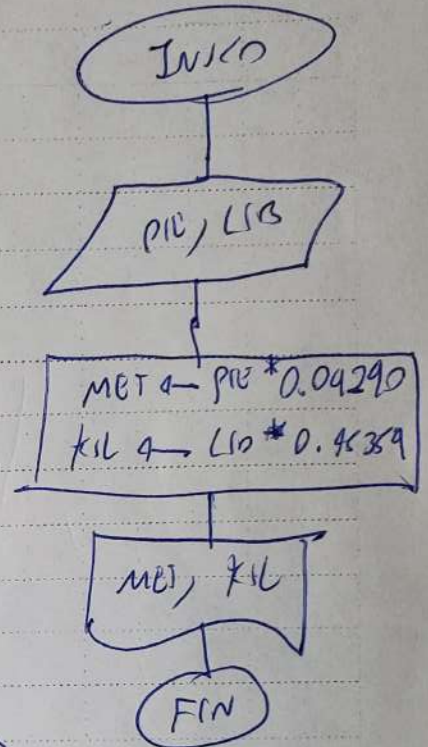 INICO
PIE, LIB
MET ← PIE * 0.04290
KIL ← LIB * 0.45359
MET, KIL
FIN